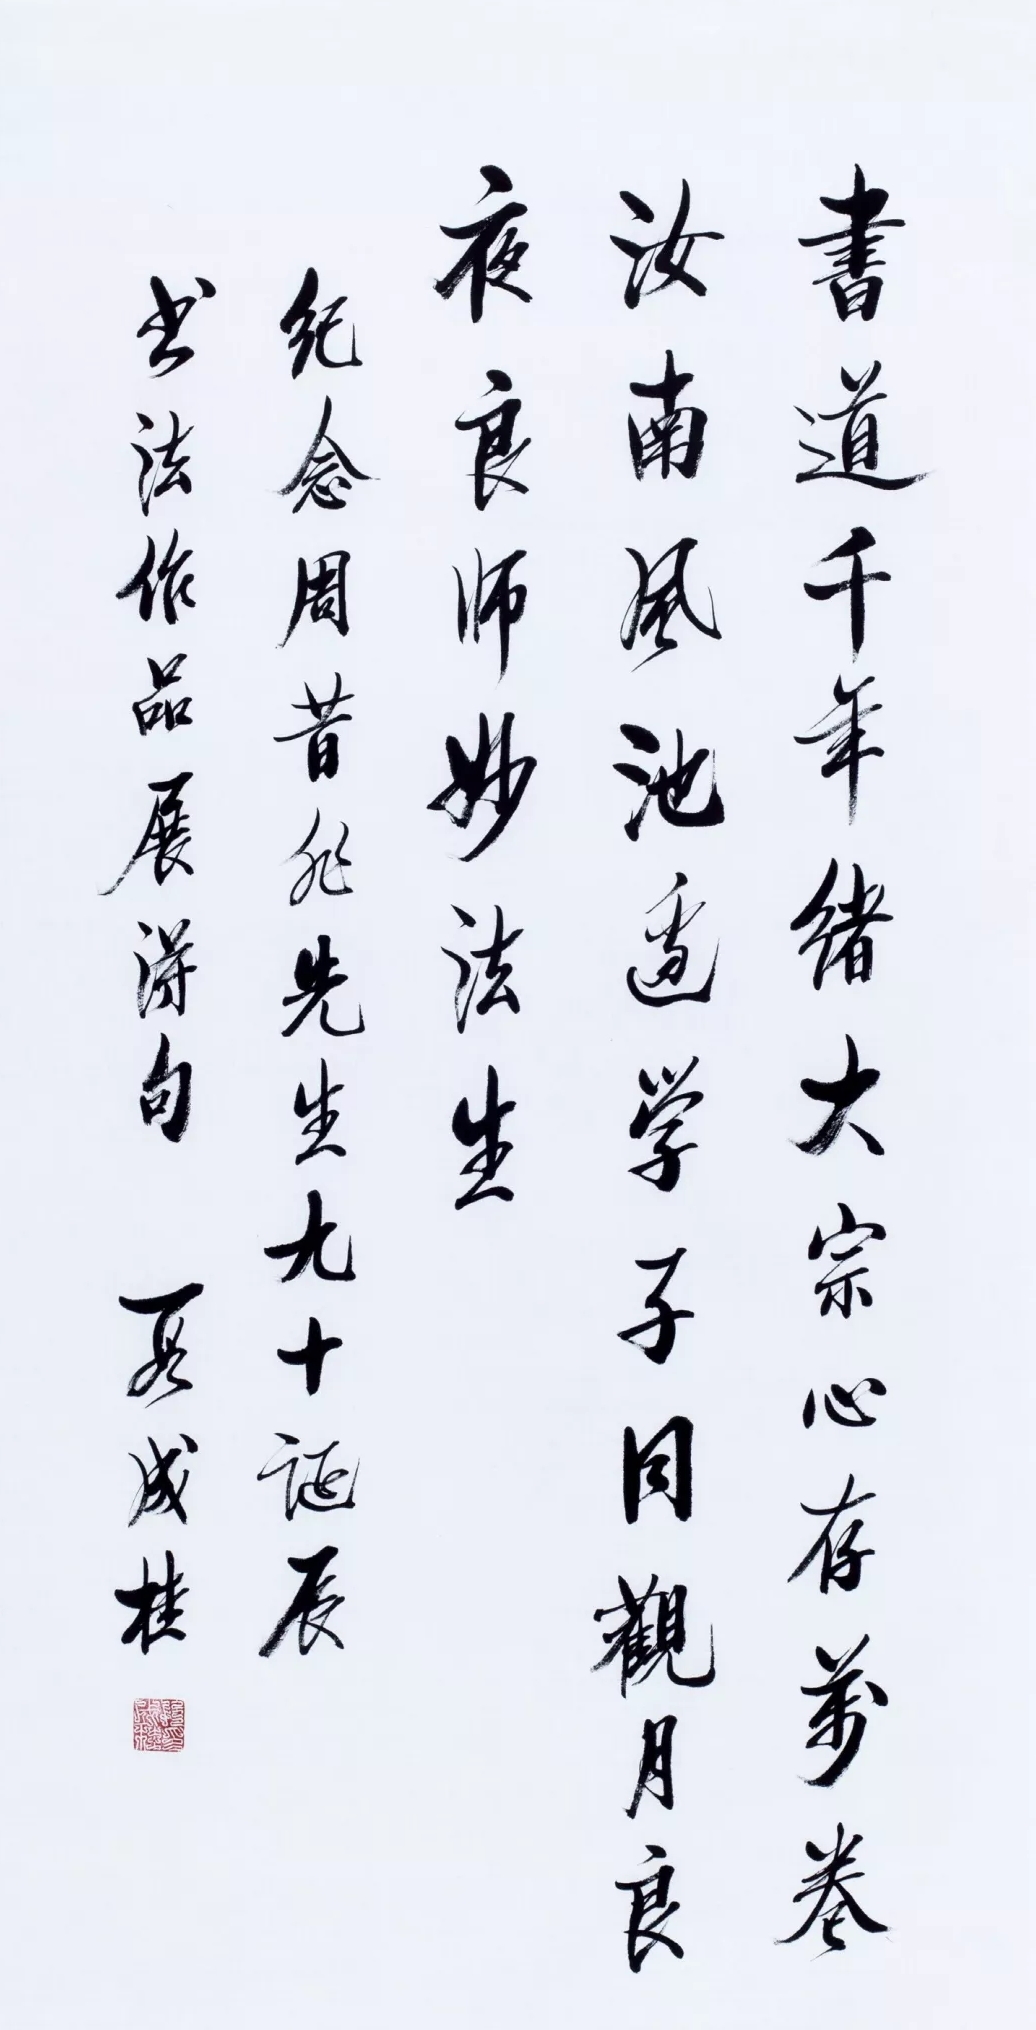 書道千年緒大宗心存萬卷
汝南風池邊学子目觀月良
夜良师妙法生
纪念周昔非先生九十诞辰
书法作品展得句 夏成桂